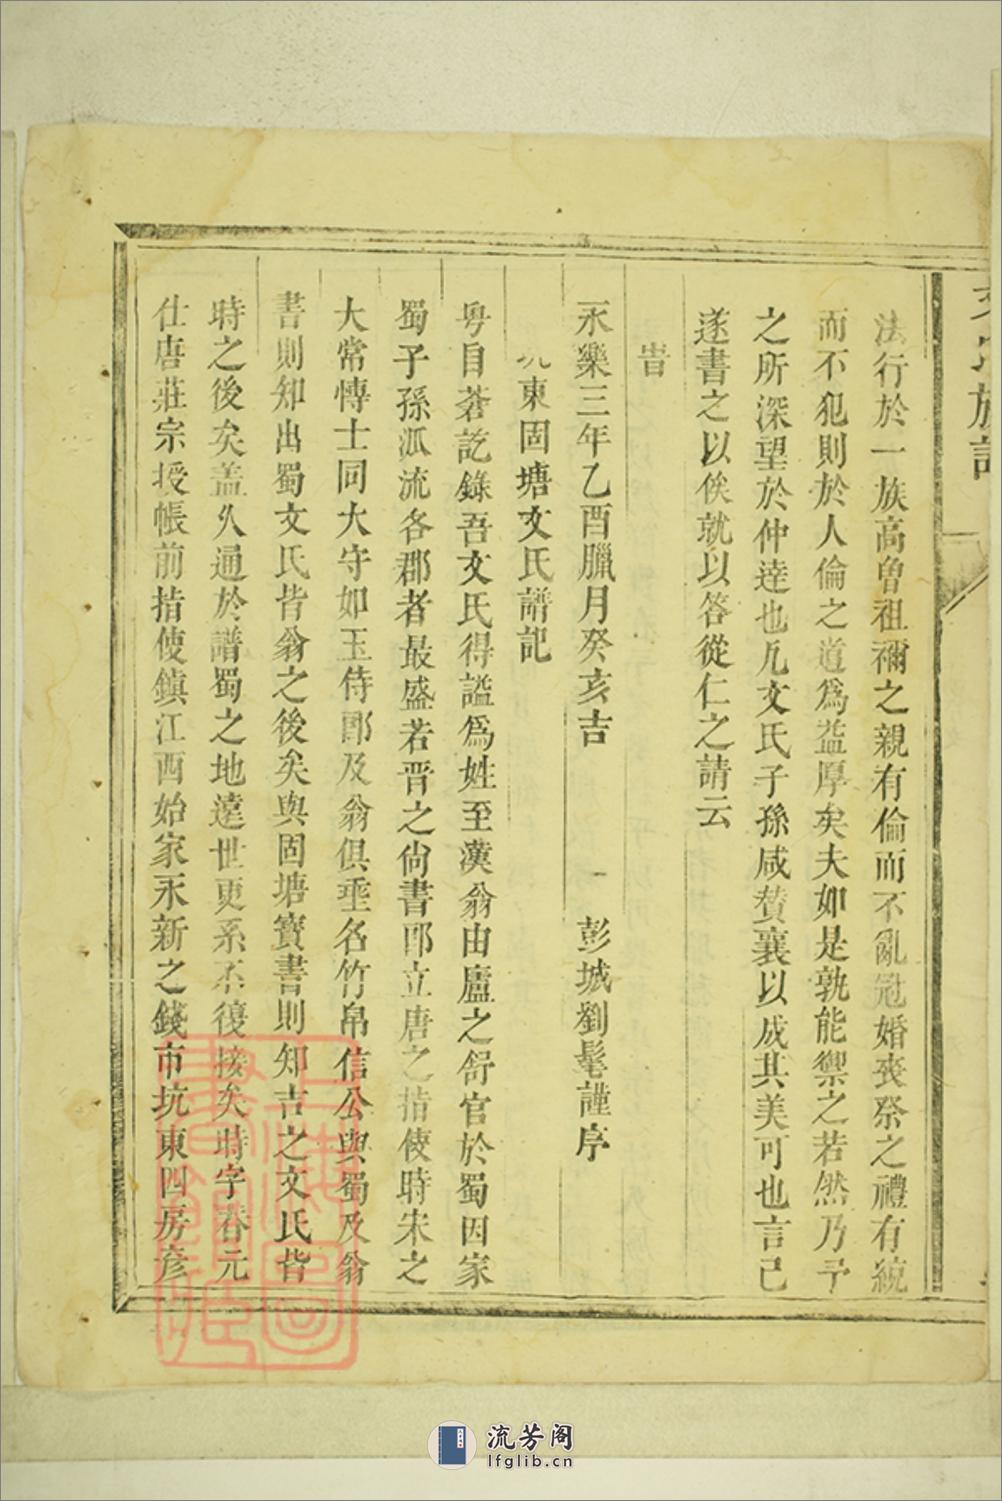 文氏族譜
法行於一族高曾祖禰之親有倫而不亂冠婚喪祭之禮有統
而不犯則於人倫之道爲益厚矣夫如是孰能禦之若然乃予
之所深望於仲達也凡文氏子孫咸賛襄以成其美可也言已
遂書之以俟就以答從仁之請云
旹
永樂三年乙酉臘月癸亥吉
彭城劉髦謹序
坑東固塘文氏譜記
粤自蒼訖錄吾文氏得謚爲姓至漢翁由廬之舒官於蜀因家
蜀子孫泒流各郡者最盛若晋之尙書郎立唐之指使時宋之
大常博士同大守如玉侍郎及翁俱垂名竹帛信公與蜀及翁
書則知出蜀文氏皆翁之後矣與固塘寳書則知吉之文氏皆
時之後矣盖久通於譜蜀之地遠世更系不復接矣時字春元
仕唐莊宗授帳前指使鎭江西始家永新之錢市坑東四房彦
上海圖書館藏
流芳阁
lfglib.cn